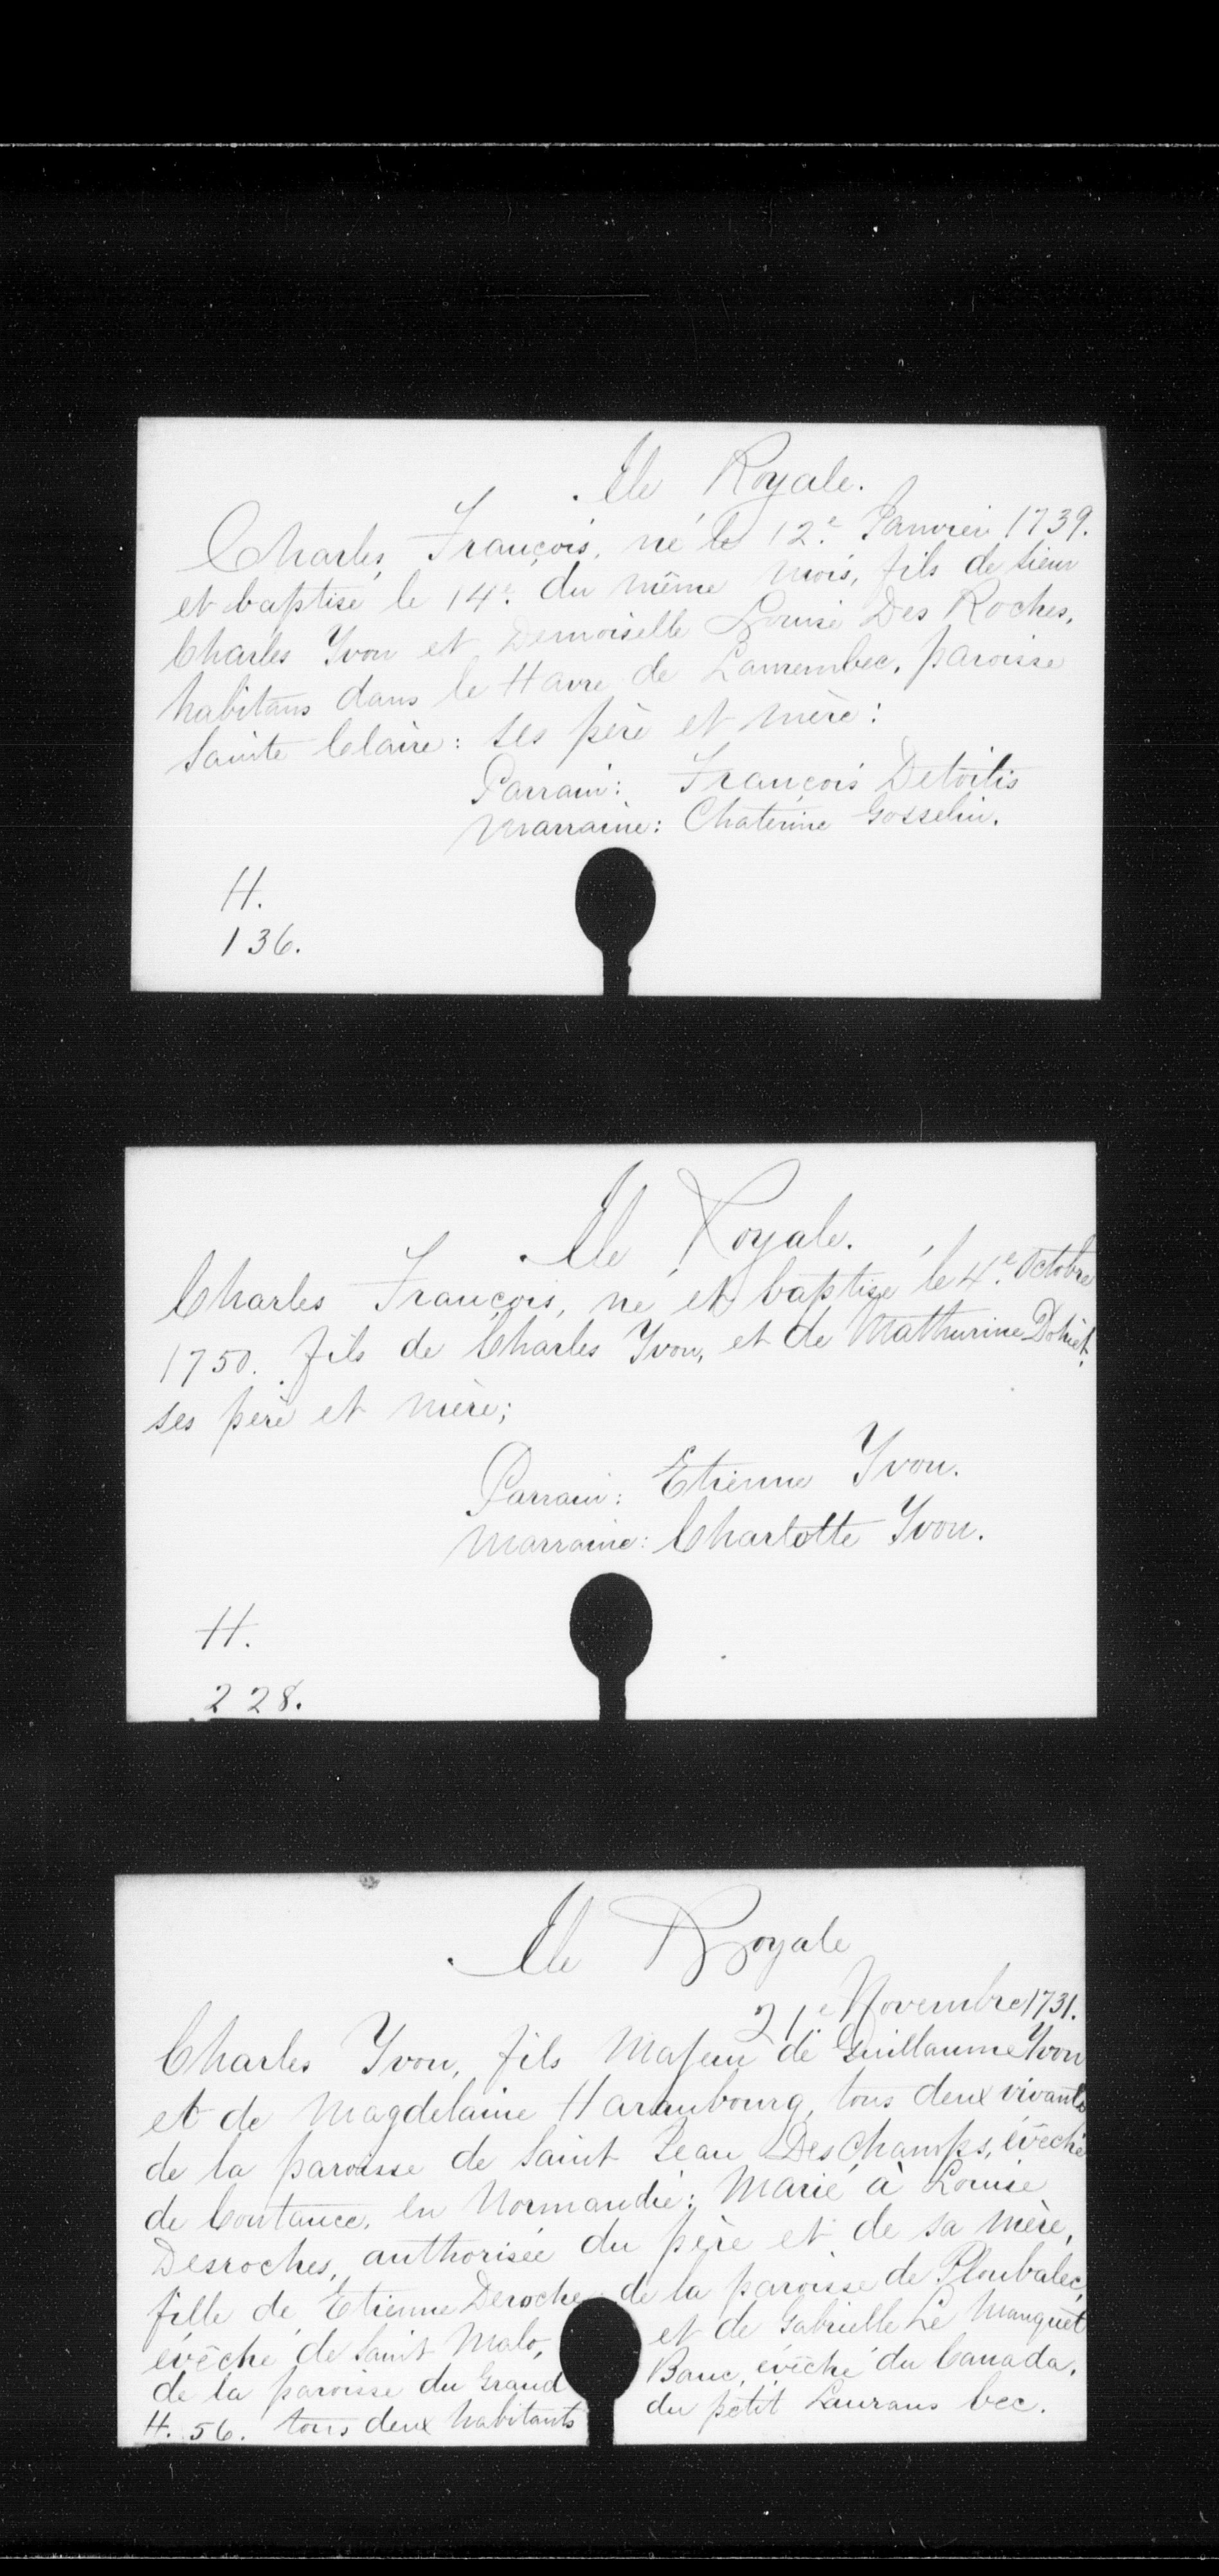 Ile Royale.
Charles François, né le 12e Janvier 1739.
et baptisé le 14e. du même mois, fils de sieur
Charles Yvon et Demoiselle Louise Des Roches,
habitans dans le Havre de Laurembec, paroisse
Sainte Claire: ses père et mère:
Parrain: François Detoitis
Marraine: Chaterine Gosselin.
H.
136.
Ile Royale.
Charles François, né et baptisé le 4e. Octobre
1750. fils de Charles Yvon, et de Mathurine
ses père et mère;
Parrain: Etienne Yvon.
Marraine: Charlotte Yvon.
H.
228.
Ile Royale
21e Novembre 1731.
Charles Yvon, fils Majeur de Guillaume Yvon
et de Magdelaine Harambourg, tous deux vivants
de la paroisse de Saint Jean Des Champs, évêché
de Coutance, en Normandie: Marié à Louise
Desroches, authorisée du père et de sa mère,
fille de Etienne Deroche de la paroisse de Ploubalec,
évêché de Saint Malo, et de Gabrielle Le Manquet
de la paroisse du Grand Banc, évêché du Canada.
H. 56. tous deux habitants du petit Laurans bec.